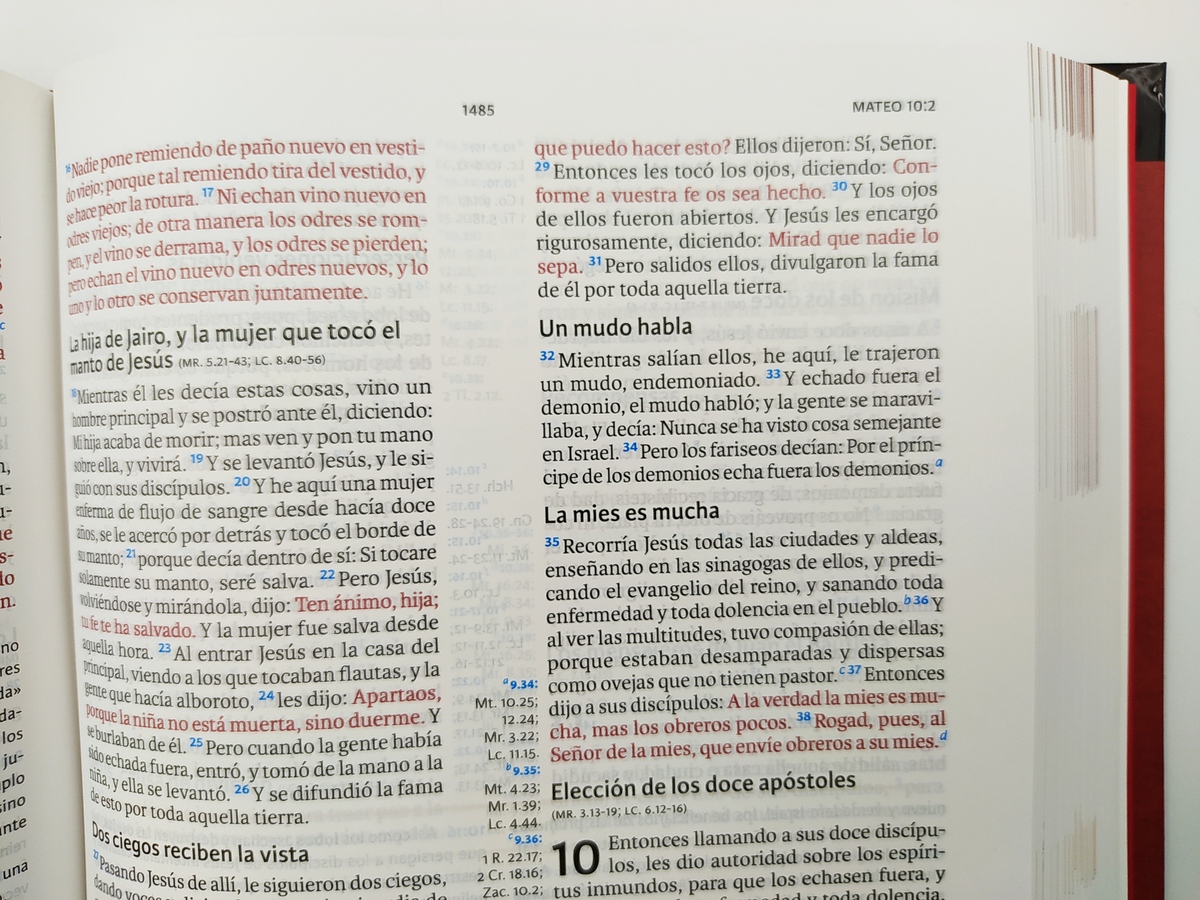 1485
MATEO 10:2
16 Nadie pone remiendo de paño nuevo en vesti-
do viejo; porque tal remiendo tira del vestido, y
se hace peor la rotura. 17 Ni echan vino nuevo en
odres viejos; de otra manera los odres se rom-
pen, y el vino se derrama, y los odres se pierden;
pero echan el vino nuevo en odres nuevos, y lo
uno y lo otro se conservan juntamente.
La hija de Jairo, y la mujer que tocó el
manto de Jesús (MR. 5.21-43; LC. 8.40-56)
18 Mientras él les decía estas cosas, vino un
hombre principal y se postró ante él, diciendo:
Mi hija acaba de morir; mas ven y pon tu mano
sobre ella, y vivirá. 19 Y se levantó Jesús, y le si-
guió con sus discípulos. 20 Y he aquí una mujer
enferma de flujo de sangre desde hacía doce
años, se le acercó por detrás y tocó el borde de
su manto; 21 porque decía dentro de sí: Si tocare
solamente su manto, seré salva. 22 Pero Jesús,
volviéndose y mirándola, dijo: Ten ánimo, hija;
tu fe te ha salvado. Y la mujer fue salva desde
aquella hora. 23 Al entrar Jesús en la casa del
principal, viendo a los que tocaban flautas, y la
gente que hacía alboroto, 24 les dijo: Apartaos,
porque la niña no está muerta, sino duerme. Y
se burlaban de él. 25 Pero cuando la gente había
sido echada fuera, entró, y tomó de la mano a la
niña, y ella se levantó. 26 Y se difundió la fama
de esto por toda aquella tierra.
Dos ciegos reciben la vista
27 Pasando Jesús de allí, le siguieron dos ciegos,
dando voces
a 9.34:
Mt. 10.25;
12.24;
Mr. 3.22;
Lc. 11.15.
b 9.35:
Mt. 4.23;
Mr. 1.39;
Lc. 4.44.
c 9.36:
1 R. 22.17;
2 Cr. 18.16;
Zac. 10.2;
que puedo hacer esto? Ellos dijeron: Sí, Señor.
29 Entonces les tocó los ojos, diciendo: Con-
forme a vuestra fe os sea hecho. 30 Y los ojos
de ellos fueron abiertos. Y Jesús les encargó
rigurosamente, diciendo: Mirad que nadie lo
sepa. 31 Pero salidos ellos, divulgaron la fama
de él por toda aquella tierra.
Un mudo habla
32 Mientras salían ellos, he aquí, le trajeron
un mudo, endemoniado. 33 Y echado fuera el
demonio, el mudo habló; y la gente se maravi-
llaba, y decía: Nunca se ha visto cosa semejante
en Israel. 34 Pero los fariseos decían: Por el prín-
cipe de los demonios echa fuera los demonios. a
La mies es mucha
35 Recorría Jesús todas las ciudades y aldeas,
enseñando en las sinagogas de ellos, y predi-
cando el evangelio del reino, y sanando toda
enfermedad y toda dolencia en el pueblo. b 36 Y
al ver las multitudes, tuvo compasión de ellas;
porque estaban desamparadas y dispersas
como ovejas que no tienen pastor. c 37 Entonces
dijo a sus discípulos: A la verdad la mies es mu-
cha, mas los obreros pocos. 38 Rogad, pues, al
Señor de la mies, que envíe obreros a su mies. d
Elección de los doce apóstoles
(MR. 3.13-19; LC. 6.12-16)
10 Entonces llamando a sus doce discípu-
los, les dio autoridad sobre los espíri-
tus inmundos, para que los echasen fuera, y
y toda dolencia.